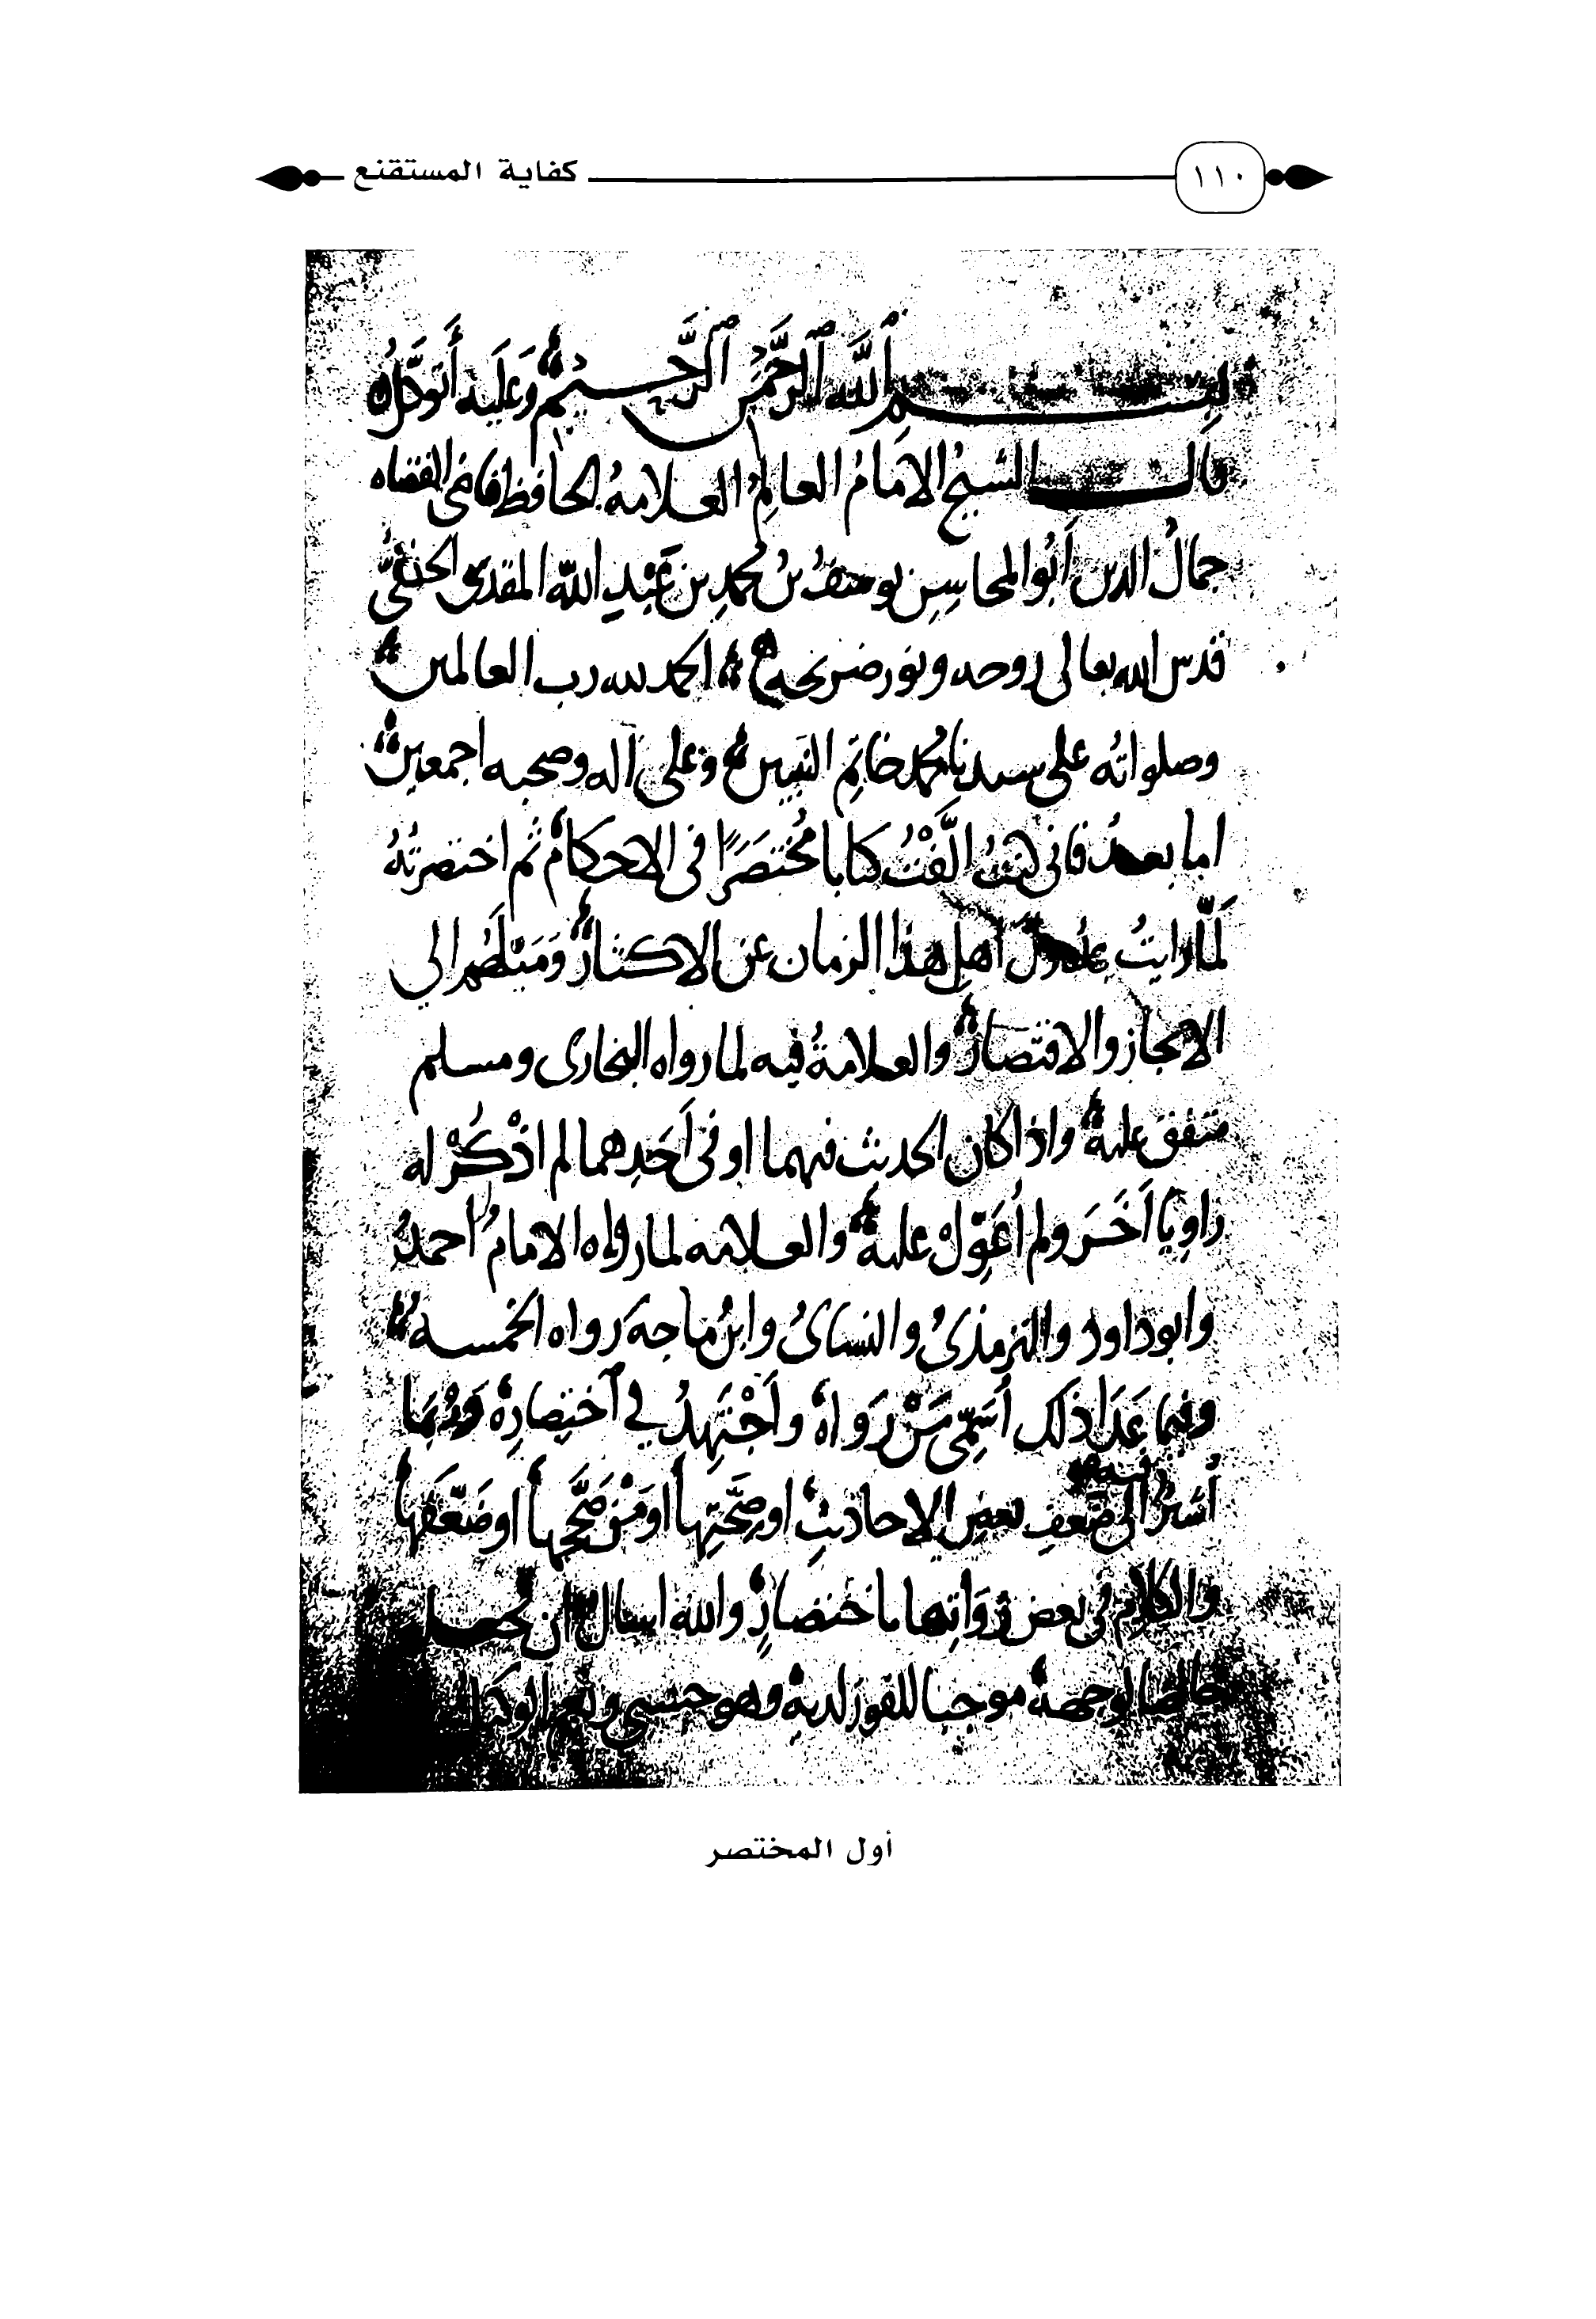 ١١٠ كفاية المستقنع
بسم ٱللَّه ٱلرَّحمٰن ٱلرَّحيم وَعَلَيه أَتَوَكَّلُ
قال الشيخُ الامَامُ العالِمُ العلامهُ الحافظ قاضى القضاه
جمالُ الدين اَبُو المحاسِن يوسفُ بنُ محمدِ بن عَبْدِ اللّه المقدسى الحنفىُّ
قدس الله تعالى روحه ونور ضريحه الحمد لله رب العالمين
وصلواتُه على سيدنا مُحمد خاتِم النبيين وعلى اله وصحبه اجمعين
اما بعدُ فانى كنتُ الَّفْتُ كتابا مُختصَرًا فى الاحكام ثم اختصرتُهُ
لمَّا رايتُ عُدولَ اَهلِ هذا الزمان عن الاكثار وَمَيْلَهُم الى
الايجاز والاقتصار والعلامةُ فيه لما رواه البخارى ومسلم
متفق عليه واذا كان الحديث فيهما او فى اَحَدِهما لم اذْكُرْ له
راوِيًا اَخَرَ ولم اُعَوِّلْ عليه والعلامه لما رواه الامامُ احمدُ
وابو داود والترمذىُ والنساىُ وابنُ ماجه رواه الخمسه
وفيما عَدَا ذلك اُسَمِّى مَنْ رَوَاه واَجْتَهِدُ في ٱختِصارِه وَرُبَما
اُشيرُ الى ضَعفِ بعضِ الاحاديثِ او صِحَّتِها او مَنْ صَحَّحها او ضَعَّفها
والكلام فى بعض رُوَاتِها باختصارٍ والله اسال ان يجعله
خالصًا لوجهه موجبا للفوز لديه وهو حسبى ونعم الوكيل
أول المختصر